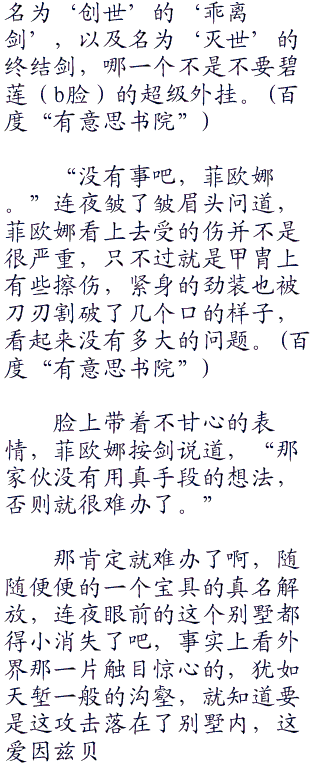 名为‘创世’的‘乖离
剑’，以及名为‘灭世’的
终结剑，哪一个不是不要碧
莲（b脸）的超级外挂。(百
度“有意思书院”)
“没有事吧，菲欧娜
。”连夜皱了皱眉头问道，
菲欧娜看上去受的伤并不是
很严重，只不过就是甲胄上
有些擦伤，紧身的劲装也被
刀刃割破了几个口的样子，
看起来没有多大的问题。(百
度“有意思书院”)
脸上带着不甘心的表
情，菲欧娜按剑说道，“那
家伙没有用真手段的想法，
否则就很难办了。”
那肯定就难办了啊，随
随便便的一个宝具的真名解
放，连夜眼前的这个别墅都
得小消失了吧，事实上看外
界那一片触目惊心的，犹如
天堑一般的沟壑，就知道要
是这攻击落在了别墅内，这
爱因兹贝